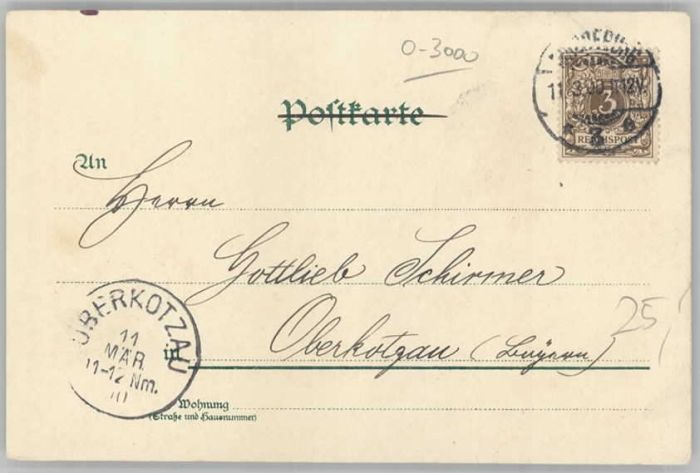 0-3000
11.3.00. 11-12V.
3
3
REICHSPOST
Postkarte
An
Herrn
Gottlieb Schirmer
Oberkotzau (Bayern)
25,
OBERKOTZAU
11
MÄR.
11-12 Nm.
in
Wohnung
(Straße und Hausnummer)